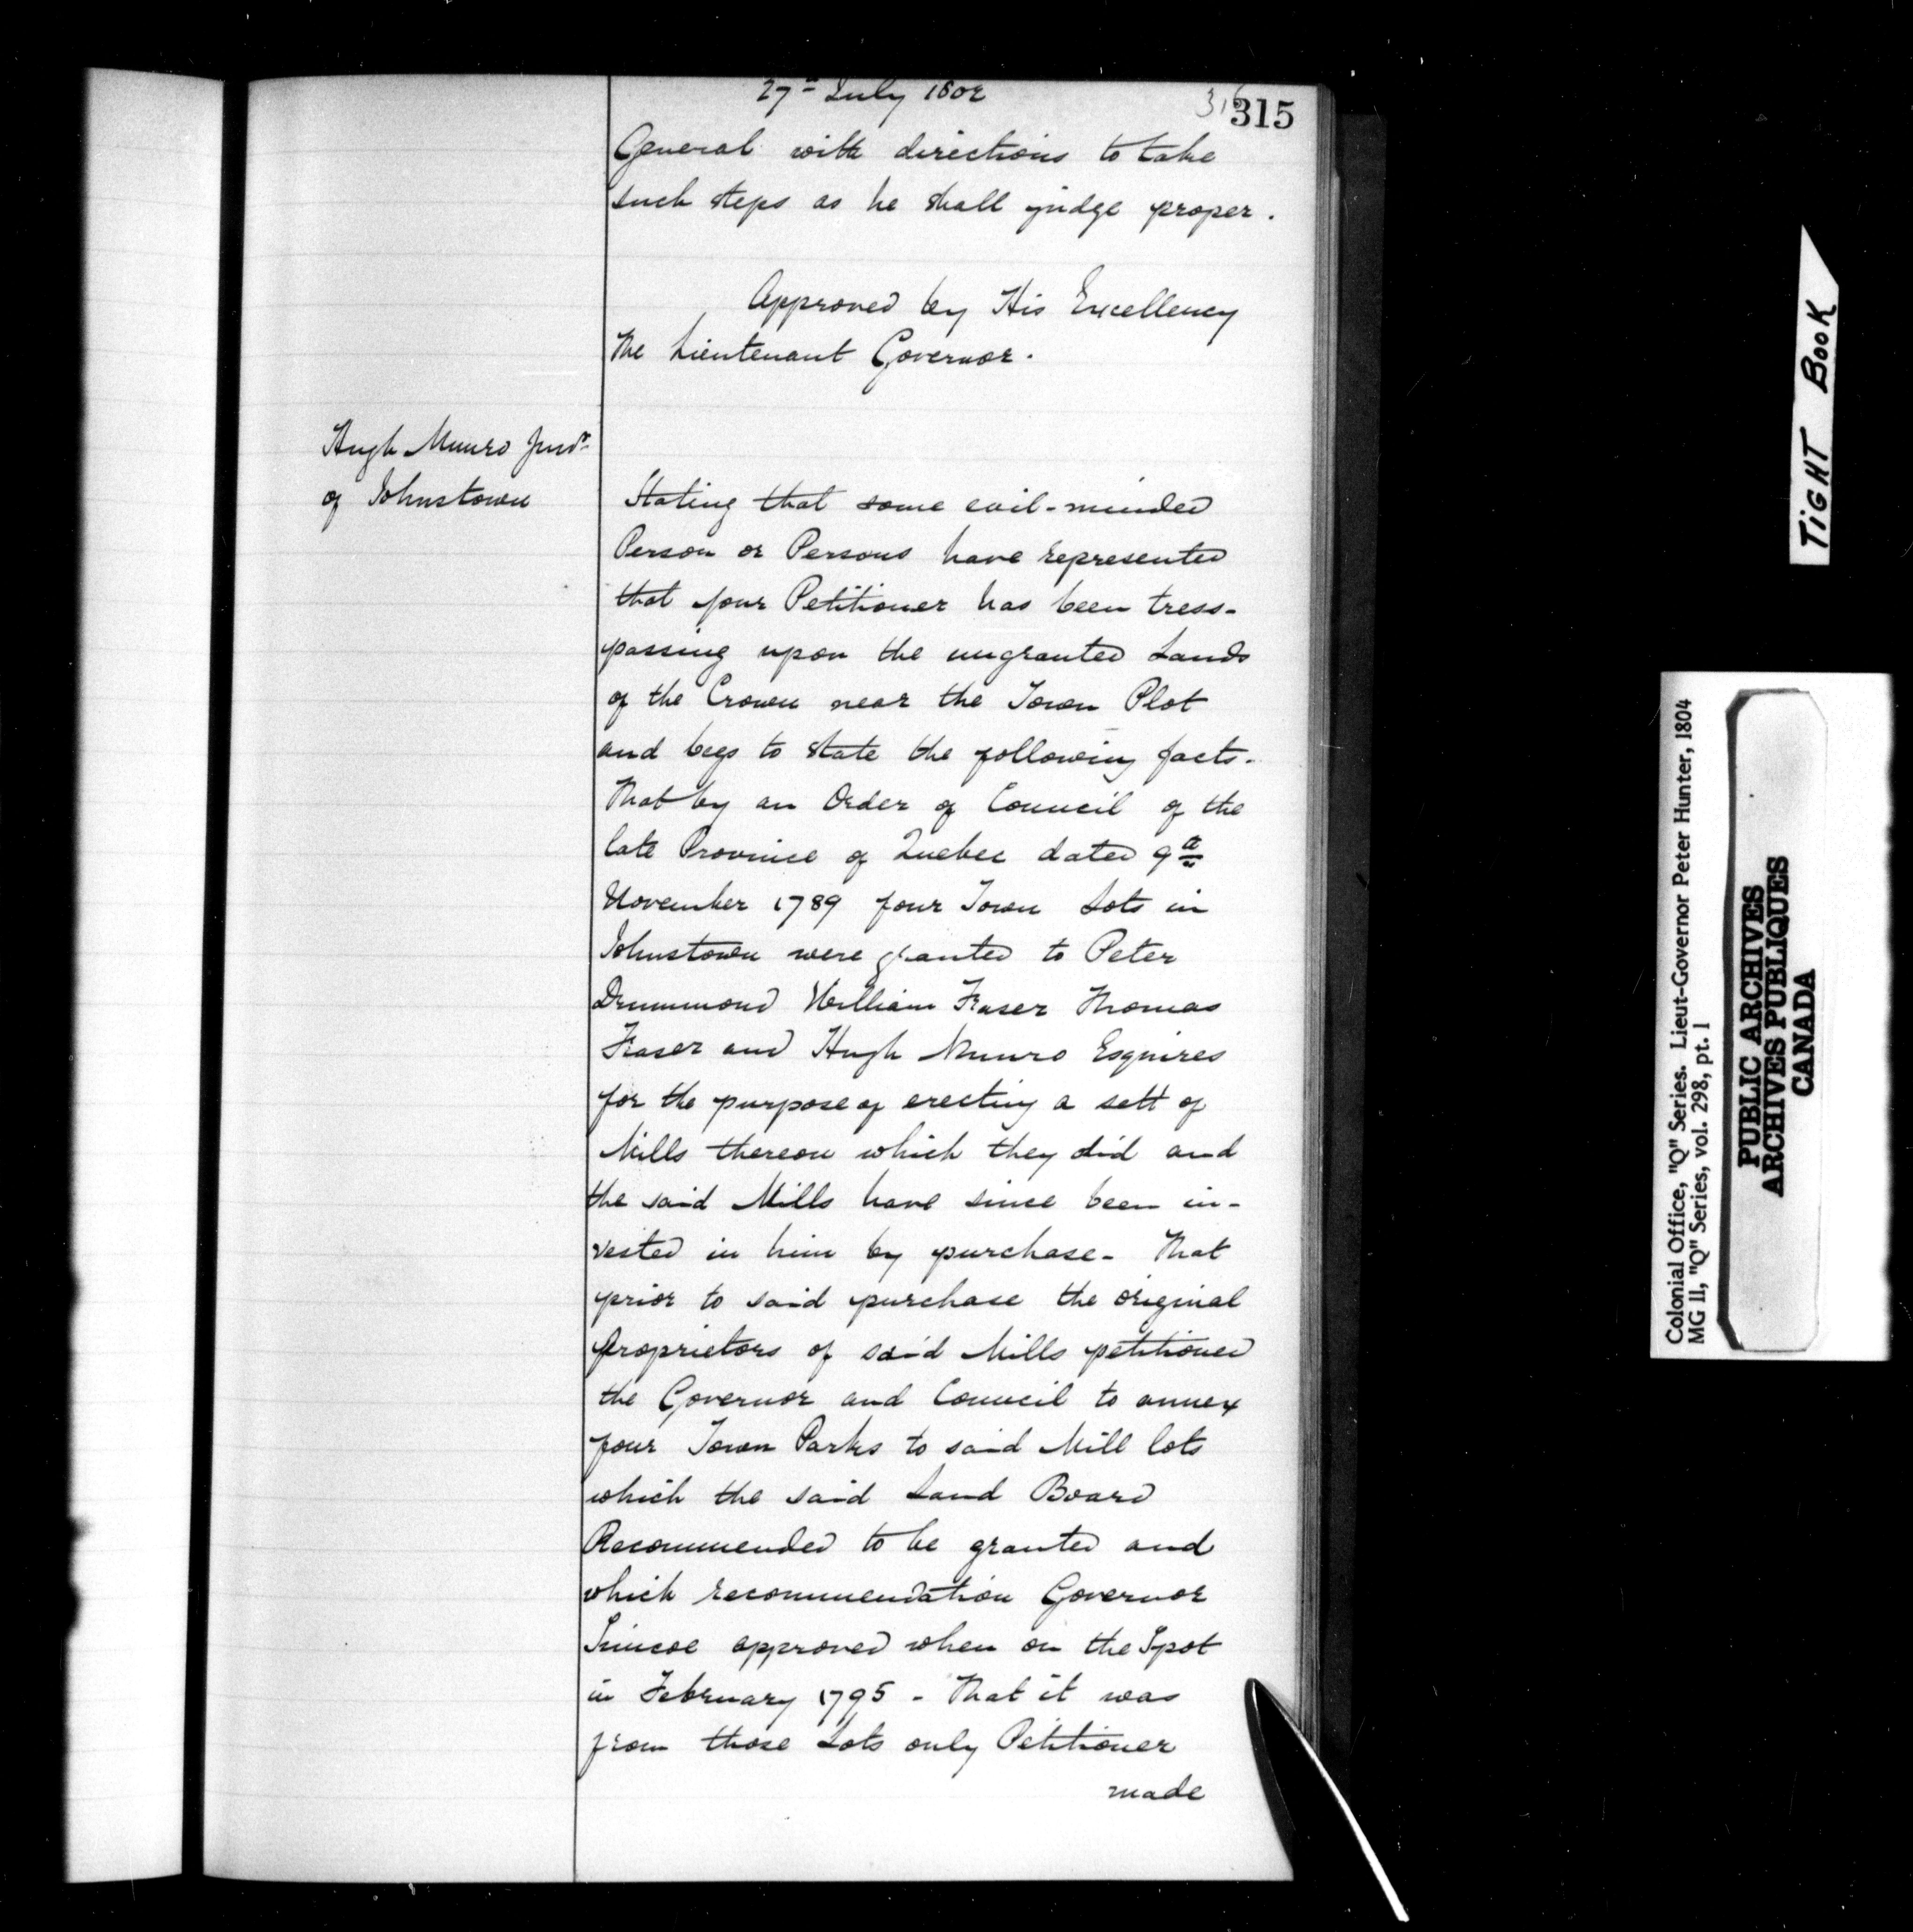 27th July 1802
315
General with directions to take
such steps as he shall judge proper.
Approved by His Excellency
The Lieutenant Governor.
Hugh Munro Junr
of Johnstown
Stating that some evil-minded
Person or Persons have represented
that your Petitioner has been tress-
passing upon the ungranted Lands
of the Crown near the Town Plot
and begs to state the following facts.
That by an Order of Council of the
late Province of Quebec dated 9th
November 1789 four Town Lots in
Johnstown were granted to Peter
Drummond William Fraser Thomas
Fraser and Hugh Munro Esquires
for the purpose of erecting a sett of
Mills thereon which they did and
the said Mills have since been in-
vested in him by purchase - That
prior to said purchase the original
Proprietors of said Mills petitioned
the Governor and Council to annex
four Town Parks to said Mill lots
which the said Land Board
Recommended to be granted and
which recommendation Governor
Simcoe approved when on the Spot
in February 1795 - That it was
from those Lots only Petitioner
made
TIGHT BOOK
Colonial Office, "Q" Series. Lieut-Governor Peter Hunter, 1804
MG 11, "Q" Series, vol. 298, pt. 1
PUBLIC ARCHIVES
ARCHIVES PUBLIQUES
CANADA